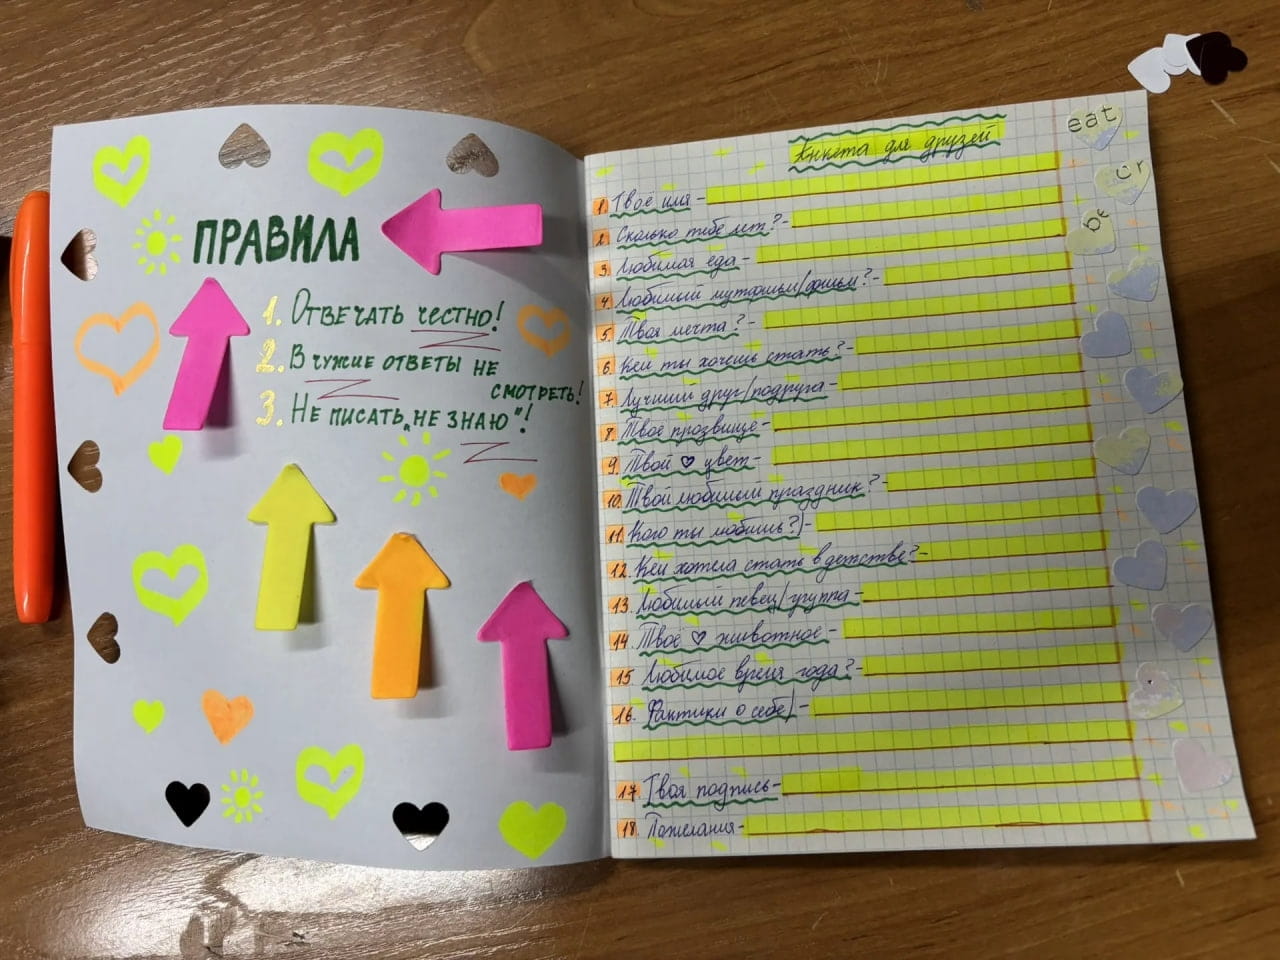 ПРАВИЛА
1. Отвечать честно!
2. В чужие ответы не
смотреть!
3. Не писать „не знаю"!
Анкета для друзей
1. Твоё имя -
2. Сколько тебе лет? -
3. Любимая еда -
4. Любимый мультфильм/фильм? -
5. Твоя мечта? -
6. Кем ты хочешь стать? -
7. Лучший друг/подруга -
8. Твоё прозвище -
9. Твой ♡ цвет -
10. Твой любимый праздник? -
11. Кого ты любишь?) -
12. Кем хотела стать в детстве? -
13. Любимый певец/группа -
14. Твоё ♡ животное -
15. Любимое время года? -
16. Фактики о себе) -
17. Твоя подпись -
18. Пожелания -
eat
cr
be